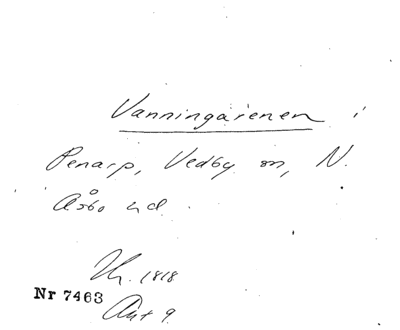 Vanningaienen i
Penarp, Vedby sn, N.
Åsbo hd.
Hr. 1818
Nr 7463
Ant 9.